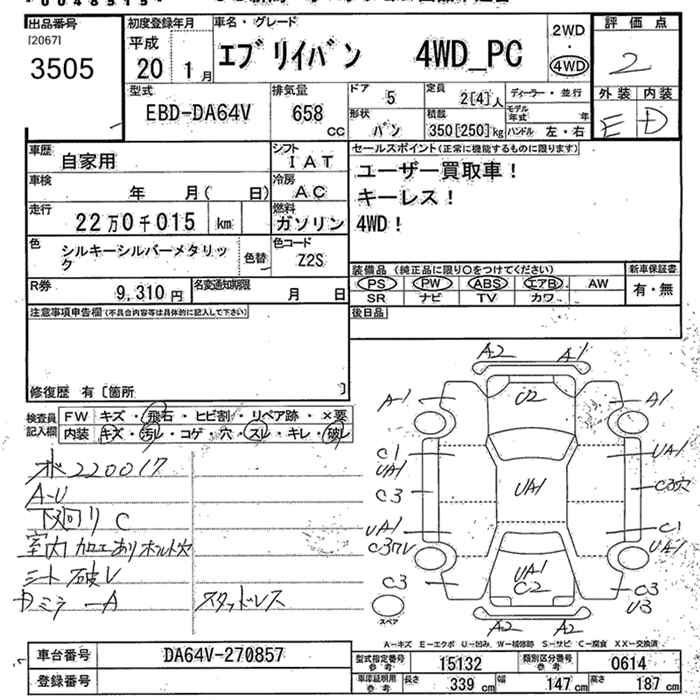 出品番号
[2067]
3505
初度登録年月
平成
20 1月
車名・グレード
エブリイバン 4WD_PC
2WD
・
4WD
評価点
2
外装 内装
E D
型式
EBD-DA64V
排気量
658
CC
ドア
5
定員
2[4]人
ディーラー・並行
モデル年式 年式
形状
バン
積載
350[250]kg
ハンドル 左・右
車歴
自家用
シフト
IAT
車検
年 月( 日)
冷房
AC
走行
22万0千015 km
燃料
ガソリン
色
シルキーシルバーメタリック
色替
色コード
Z2S
R券
9,310円
名変通知期限
月 日
セールスポイント(正常に機能するものに限ります)
ユーザー買取車!
キーレス!
4WD!
装備品(純正品に限り○をつけてください)
新車保証書
PS PW ABS エアB AW
有・無
SR ナビ TV カワ
後日品
注意事項申告欄(不具合内容等は具体的に記入して下さい)
修復歴 有[箇所 ]
検査員
記入欄
FW キズ・飛石・ヒビ割・リペア跡・×要
内装 キズ・汚レ・コゲ・穴・スレ・キレ・破レ
220017
A-U
下廻り C
室内 加工あり ボルト穴
シート 破レ
スタッドレス
A2 A1
A-1 U2 A1
C1 UA1
UA1
C3 UA1 C3穴
UA1 C1
UA1
UA1
C3 C2 C3
U3
A2 A2
スペア
A－キズ E－エクボ U－凹み W－補修跡 S－サビ C－腐食 XX－交換済
車台番号
DA64V-270857
登録番号
型式指定番号
参考
15132
類別区分番号
参考
0614
車庫証明用
参考
長さ 339cm 幅 147cm 高さ 187cm